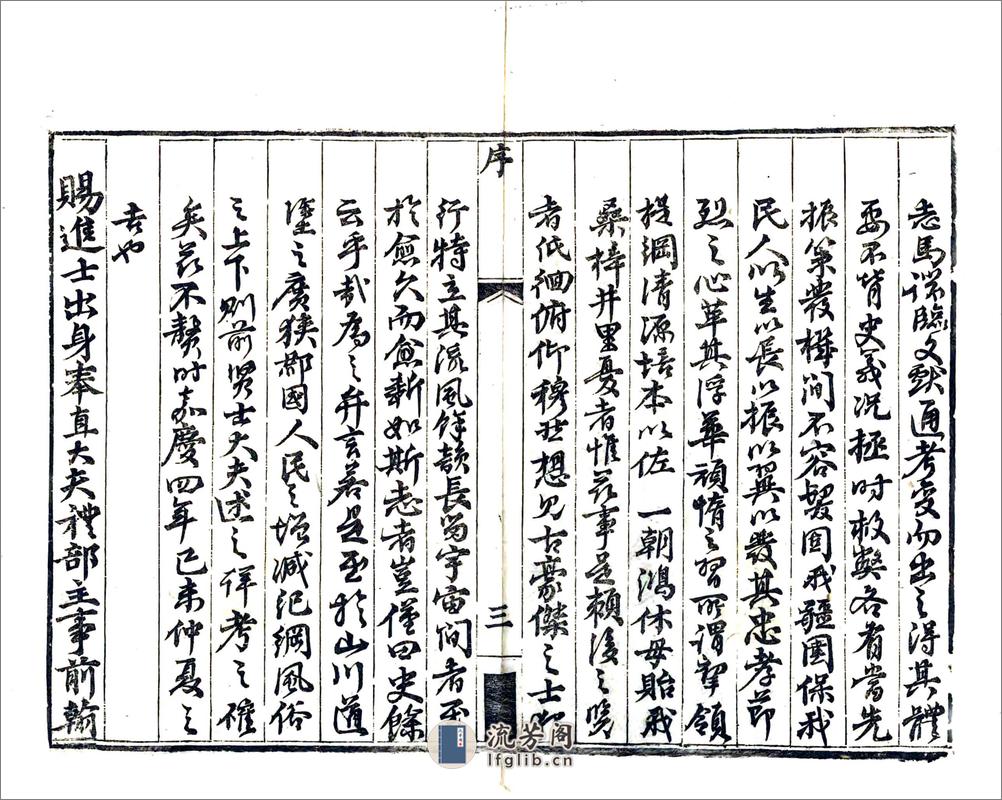 志馬端臨文獻通考變而出之得其體
要不背史義况拯時救獘各有當先
振策發樺间不容髮固我疆圉保我
民人以生以長以振以翼以發其忠孝节
烈之心革其浮華頑惰之習所谓挈領
提綱清源培本以佐 一朝鴻休毋貽我
桑梓井里憂者惟兹事是頼後之覽
者低徊俯仰穆然想见古豪傑之士
序
三
行特立其流風餘韻長留宇宙间者至
於愈久而愈新如斯志者豈僅曰史餘
云乎哉為之弁言若是至於山川道
里之廣狭郡國人民之增減纪綱風俗
之上下则前贤士大夫述之详考之確
矣兹不贅时嘉慶四年己未仲夏之
吉也
賜進士出身奉直大夫禮部主事前翰
流芳阁
lfglib.cn